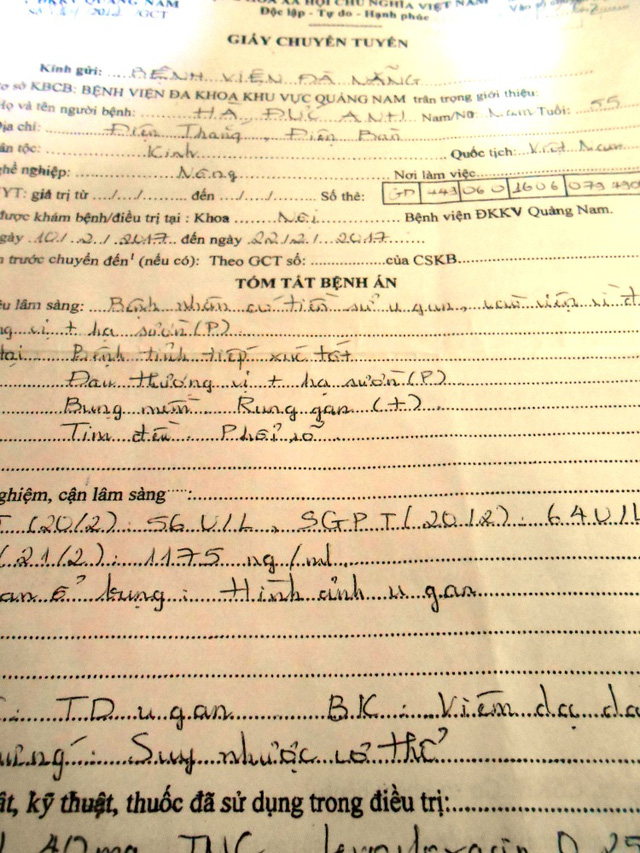 ĐKKV QUẢNG NAM HÒA XÃ HỘI CHỦ NGHĨA VIỆT NAM
/GCT Độc lập - Tự do - Hạnh phúc
GIẤY CHUYỂN TUYẾN
Kính gửi: BỆNH VIỆN ĐÀ NẴNG
sở KBCB: BỆNH VIỆN ĐA KHOA KHU VỰC QUẢNG NAM trân trọng giới thiệu:
Họ và tên người bệnh: HÀ ĐỨC ANH Nam/Nữ: Nam Tuổi: 55
Địa chỉ: Điện Thắng, Điện Bàn
ân tộc: Kinh Quốc tịch: Việt Nam
ghề nghiệp: Nông Nơi làm việc
YT: giá trị từ .../.../......... đến .../.../......... Số thẻ: GD 443 06 0 1606 079
được khám bệnh/điều trị tại : Khoa Nội Bệnh viện ĐKKV Quảng Nam.
gày 10/2/2017 đến ngày 22/2/2017
trước chuyển đến¹ (nếu có): Theo GCT số: của CSKB
TÓM TẮT BỆNH ÁN
ệu lâm sàng: Bệnh nhân có tiền sử u gan, vào viện vì đ
ng vị + hạ sườn (P)
tại Bệnh tỉnh tiếp xúc tốt
Đau thượng vị + hạ sườn (P)
Bụng mềm. Rung gan (+)
Tim đều. Phổi rõ
ghiệm, cận lâm sàng :
T (20/2): 56 U/L, SGPT (20/2): 64 U/L
(21/2): 1175 ng/ml.
an ổ bụng: Hình ảnh u gan
: TD u gan BK: Viêm dạ dà
Suy nhược cơ thể
ật, kỹ thuật, thuốc đã sử dụng trong điều trị:
40mg